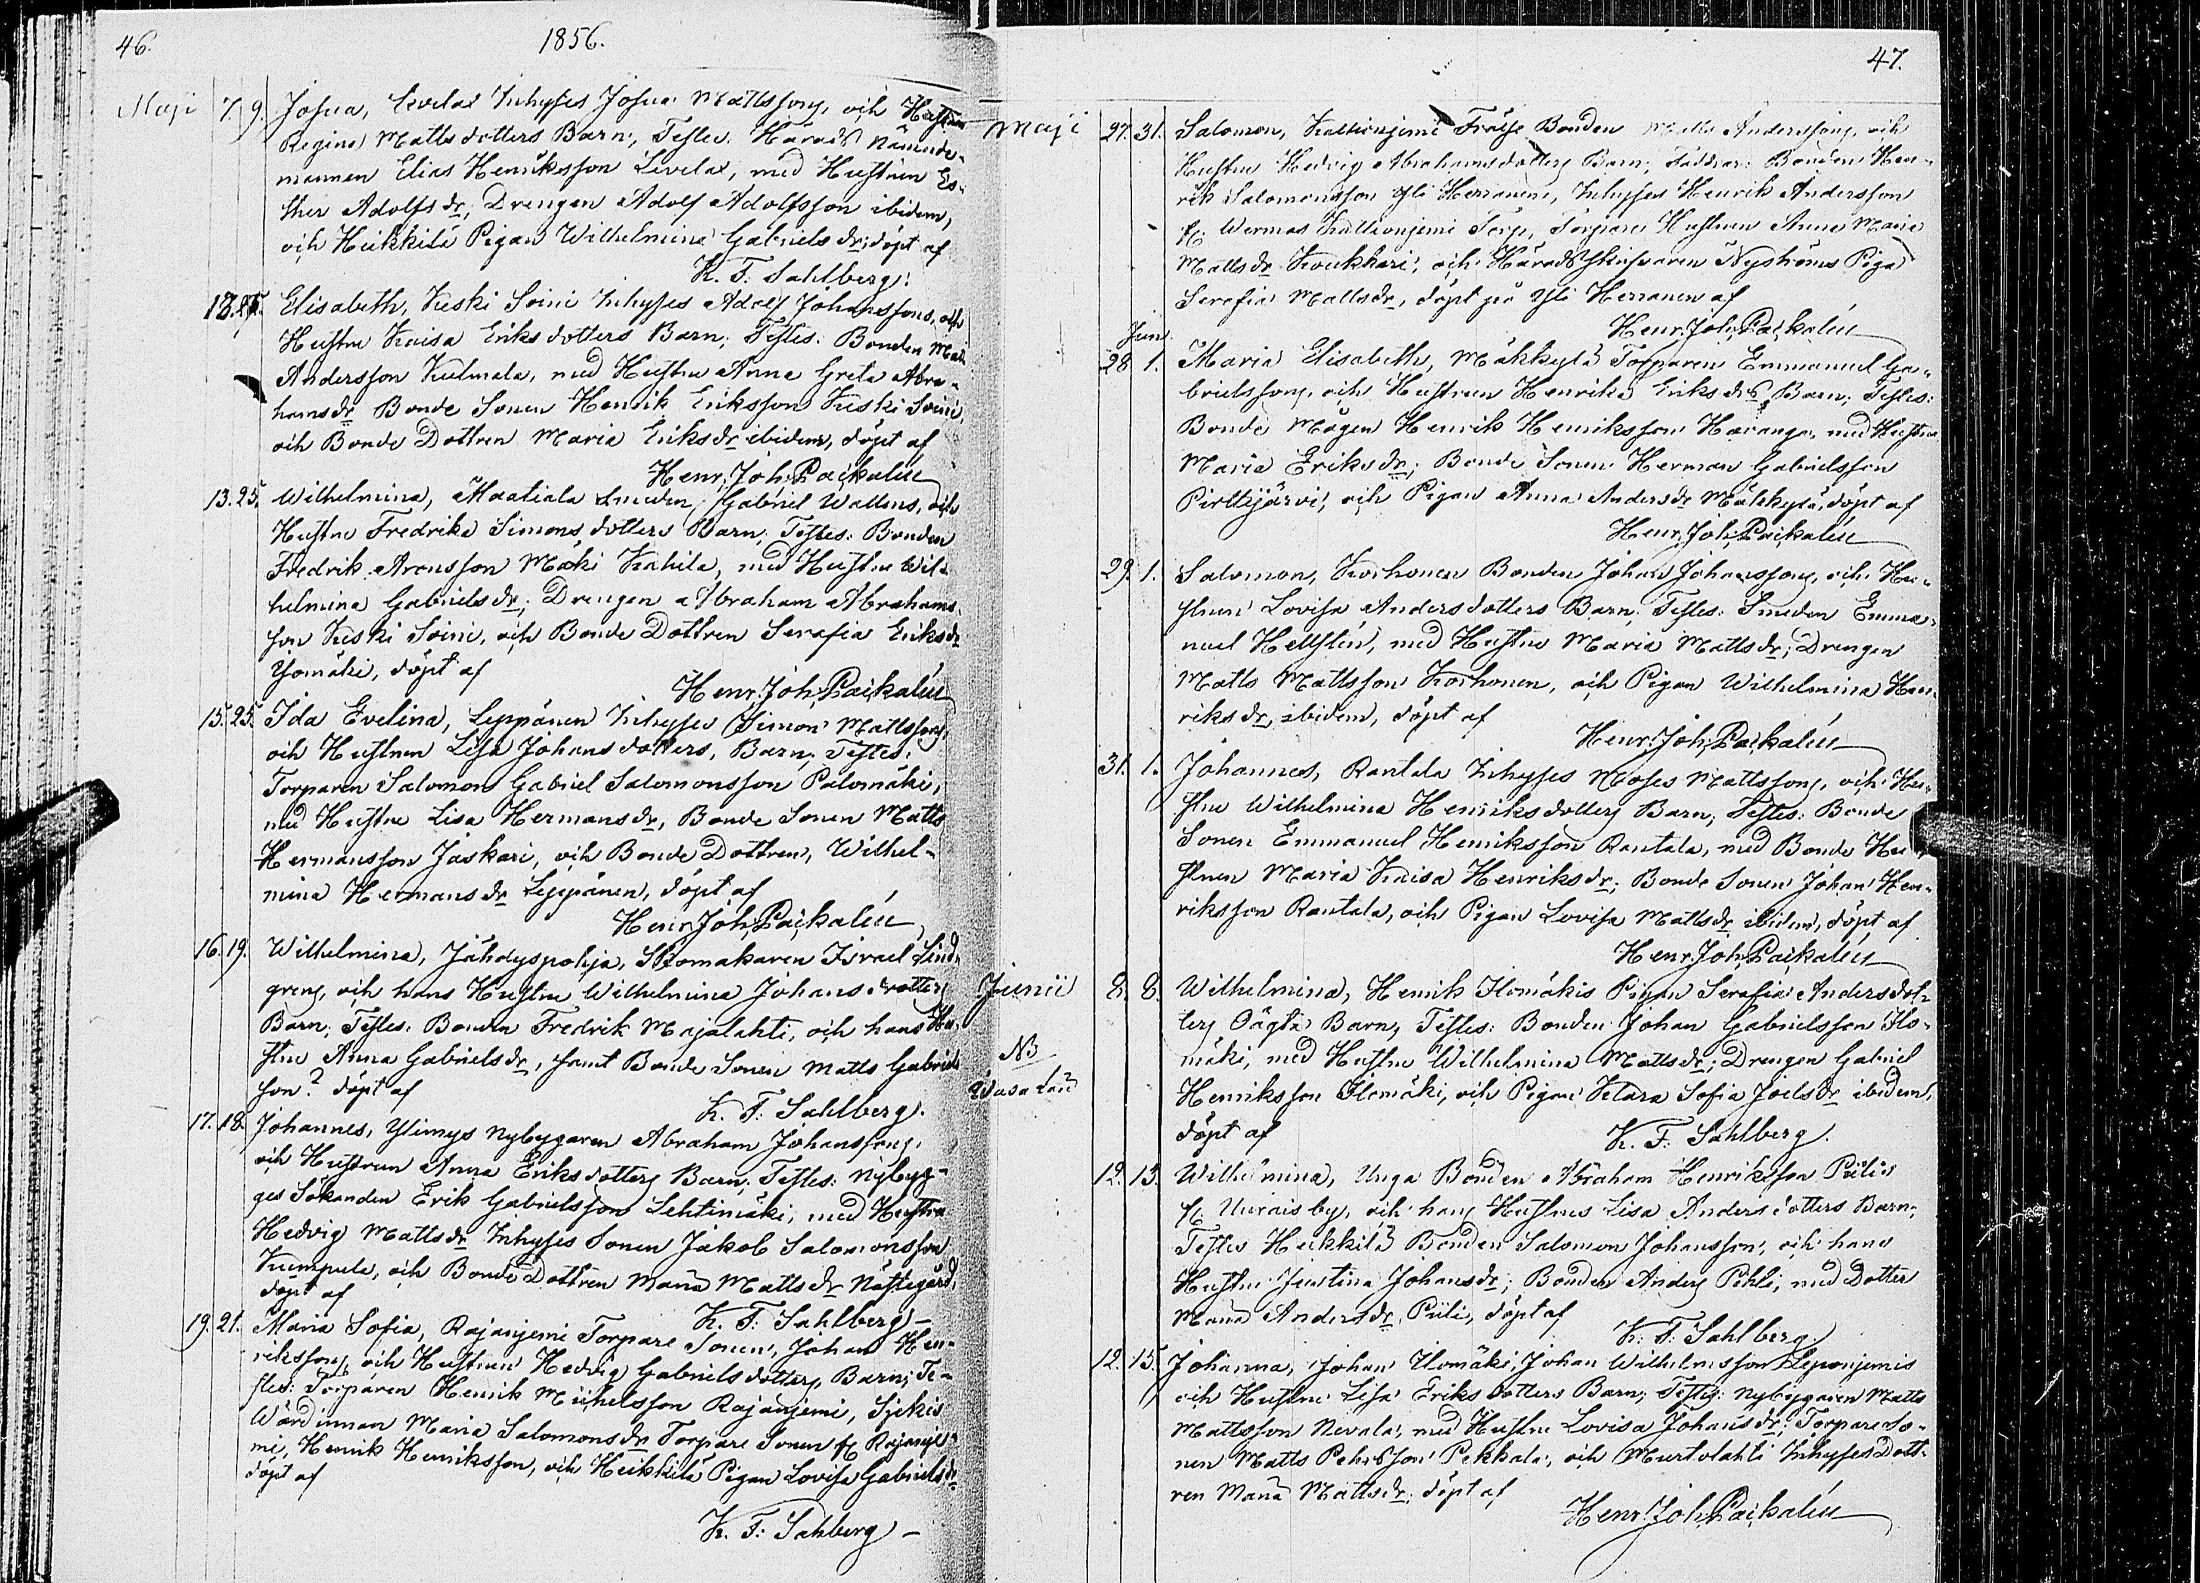 46.
1856.
Maji 7. 9. Josua, Levelax Inhyses Josua Mattssons, och Hustrun
Regina Mattsdotters Barn; Testes: Härads Nämnde-
mannen Elias Henriksson Levelax, med Hustrun Es-
ther Adolfsdr, Drengen Adolf Adolfsson ibidem,
och Heikkilä Pigan Wilhelmina Gabrielsdr; döpt af
K. F. Sahlberg.
13. 25. Elisabeth, Keski Soini Inhyses Adolf Johanssons, och
Hustru Kaisa Eriksdotters Barn; Testes: Bonden Mats
Andersson Kulmala, med Hustru Anna Greta Abra-
hamsdr Bonde Sonen Henrik Eriksson Keski Soini,
och Bonde Dottren Maria Eriksdr ibidem, döpt af
Henr. Joh. Paikalén
13. 25. Wilhelmina, Maatiala Smeden Gabriel Wallens, och
Hustru Fredrika Simonsdotters Barn; Testes: Bonden
Fredrik Aronsson Mäki Kahila, med Hustru Wil-
helmina Gabrielsdr; Drengen Abraham Abrahams
son Keski Soini, och Bonde Dottren Serafia Eriksdr
Yomäki, döpt af
Henr. Joh. Paikalén
15. 25. Ida Evelina, Leppänen Inhyses Simon Mattssons,
och Hustrun Lisa Johansdotters, Barn; Testes:
Torparen Salomon Gabriel Salomonsson Palomäki,
med Hustru Lisa Hermansdr, Bonde Sonen Matts
Hermansson Jaskari, och Bonde Dottren, Wilhel-
mina Hermansdr Leppänen, döpt af
Henr. Joh. Paikalén
16. 19. Wilhelmina, Jähdyspohja, Skomakaren Israel Lind-
grens, och hans Hustru Wilhelmina Johansdotters
Barn; Testes: Bonden Fredrik Majalahti, och hans Hu-
stru Anna Gabrielsdr, samt Bonde Sonen Matts Gabriels
son? döpt af
K. F. Sahlberg.
17. 18. Johannes, Ylimys Nybygaren Abraham Johanssons,
och Hustrun Anna Eriksdotters Barn; Testes: Nybyg-
ges Sökanden Erik Gabrielsson Lehtimäki, med Hustru
Hedvig Mattsdr Inhyses Sonen Jakob Salomonsson
Kumpula, och Bonde Dottren Maria Mattsdr Nästegård,
döpt af
K. F. Sahlberg
19. 21. Maria Sofia, Rajaniemi Torpare Sonen, Johan Hen-
rikssons, och Hustrun Hedvig Gabrielsdotters, Barn; Te-
stes: Torparen Henrik Michelsson Rajaniemi, Syikis
Wärdinnan Maria Salomonsdr Torpare Sonen fr Rajanie-
mi, Henrik Henriksson, och Heikkilä Pigan Lovisa Gabrielsdr
döpt af
K. F. Sahlberg
47.
Maji 27. 31. Salomon, Kallionjemi Frälse Bonden Matts Anderssons, och
Hustru Hedvig Abrahamsdotters Barn; Faddrar: Bonden Hen-
rik Salomonsson Yli Herranen, Inhyses Henrik Andersson
fr Wermas Kallionjemi Torp, Torpare Hustrun Anna Maria
Mattsdr Koukkari, och Häradsskrifvaren Nyströms Piga
Serafia Mattsdr, döpt på Yli Herranen af
Henr. Joh. Paikalén
Juni
28 1. Maria Elisabeth, Mäkkylä Torparen Emmanuel Ga-
brielssons, och Hustrun Henrika Eriksdrs Barn; Testes:
Bonde Mågen Henrik Henriksson Haranga, med Hustru
Maria Eriksdr; Bonde Sonen Herman Gabrielsson
Pirttijärvi, och Pigan Anna Andersdr Mäkkylä, döpt af
Henr. Joh. Paikalén
29. 1. Salomon, Korhonen Bonden Johan Johanssons, och Hu-
strun Lovisa Andersdotters Barn; Testes: Smeden Emma-
nuel Hellstén, med Hustru Maria Mattsdr; Drengen
Matts Mattsson Korhonen, och Pigan Wilhelmina Hen-
riksdr, ibidem, döpt af
Henr. Joh. Paikalén
31. 1. Johannes, Rantala Inhyses Moses Mattssons, och Hu-
stru Wilhelmina Henriksdotters Barn; Testes: Bonde
Sonen Emmanuel Henriksson Rantala, med Bonde Hu-
strun Maria Kaisa Henriksdr; Bonde Sonen Johan Hen-
riksson Rantala, och Pigan Lovisa Mattsdr ibidem, döpt af
Henr. Joh. Paikalén
Junii 8. 8. Wilhelmina, Henrik Ilomäkis Pigan Serafia Andersdot-
ters Oägta Barn; Testes: Bonden Johan Gabrielsson Ilo-
mäki, med Hustru Wilhelmina Mattsdr; Drengen Gabriel
NB
Wasa Län
Henriksson Ilomäki, och Pigan Klara Sofia Joelsdr ibidem,
döpt af
K. F. Sahlberg.
12. 13. Wilhelmina, Unga Bonden Abraham Henriksson Piilis
fr Uurais by, och hans Hustrus Lisa Andersdotters Barn;
Testes Heikkilä Bonden Salomon Johansson, och hans
Hustru Justina Johansdr; Bonden Anders Pihli, med Dotter
Maria Andersdr Piili, döpt af
K. F. Sahlberg.
12. 15. Johanna, Johan Ilomäki, Johan Wilhelmsson Leponjemis
och Hustru Lisa Eriksdotters Barn; Testes: Nybygaren Matts
Mattsson Nevala, med Hustru Lovisa Johansdr; Torpare So-
nen Matts Pehrsson Pekkala, och Murtolahti Inhyses Dott-
ren Maria Mattsdr; döpt af
Henr. Joh. Paikalén